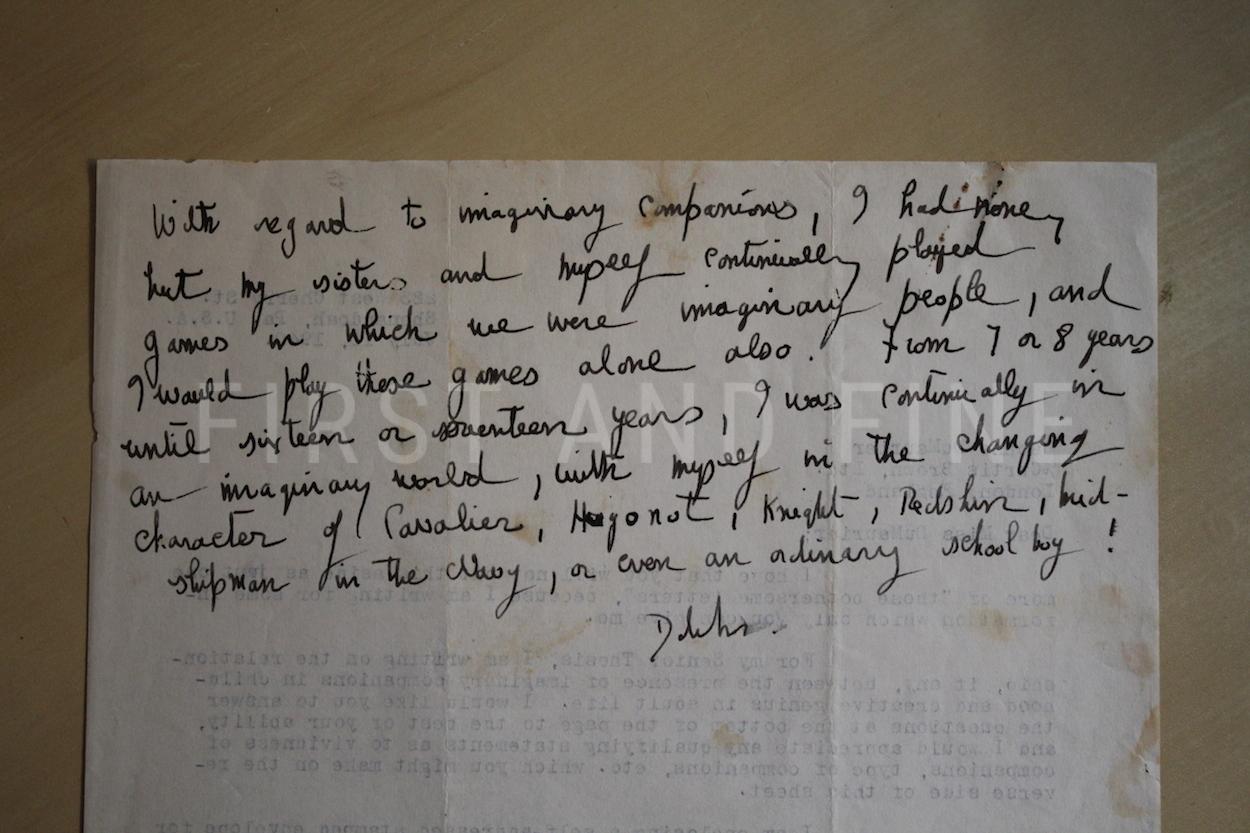 With regard to imaginary companions, I had none,
but my sisters and myself continually played
games in which we were imaginary people, and
I would play these games alone also. From 7 or 8 years
until sixteen or seventeen years, I was continually in
an imaginary world, with myself in the changing
character of Cavalier, Hugonot, Knight, Redskin, mid-
shipman in the Navy, or even an ordinary school boy!
FIRST AND FINE
I hope that you will not
more of "those bothersome letters", because I am writing for some in-
formation which only you can give me.
For my Senior Thesis, I am writing on the relation-
ship, if any, between the presence of imaginary companions in child-
hood and creative genius in adult life. I would like you to answer
the questions at the bottom of the page to the best of your ability,
and I would appreciate any qualifying statements as to vividness of
companions, type of companions, etc. which you might make on the re-
verse side of this sheet.